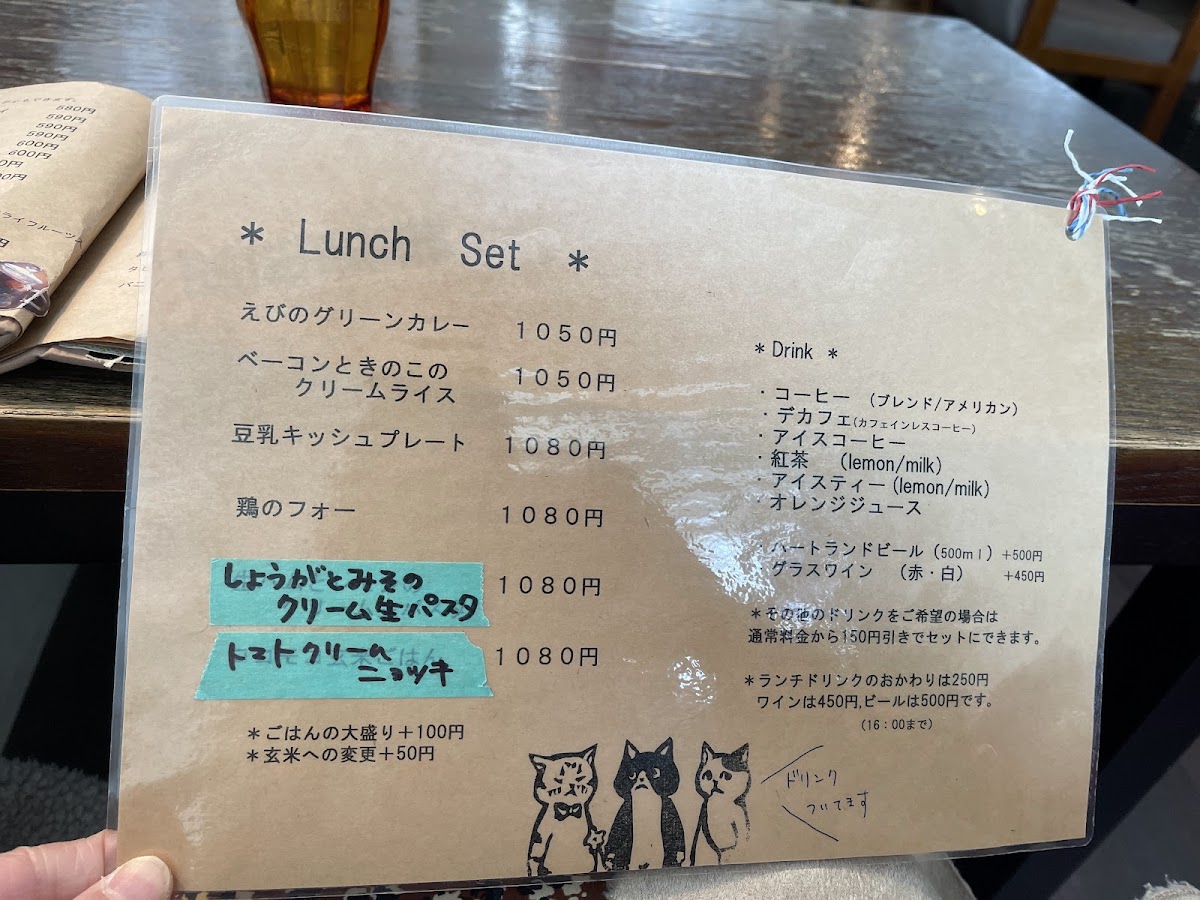 580円
590円
590円
590円
600円
600円
ライフルーツ
* Lunch Set *
えびのグリーンカレー 1050円
ベーコンときのこの
クリームライス 1050円
豆乳キッシュプレート 1080円
鶏のフォー 1080円
しょうがとみその
クリーム生パスタ 1080円
トマトクリーム
ニョッキ 1080円
*ごはんの大盛り+100円
*玄米への変更+50円
* Drink *
・コーヒー (ブレンド/アメリカン)
・デカフェ(カフェインレスコーヒー)
・アイスコーヒー
・紅茶 (lemon/milk)
・アイスティー(lemon/milk)
・オレンジジュース
ハートランドビール(500ml)+500円
・グラスワイン (赤・白) +450円
*その他のドリンクをご希望の場合は
通常料金から150円引きでセットにできます。
*ランチドリンクのおかわりは250円
ワインは450円,ビールは500円です。
(16:00まで)
ドリンク
ついてます